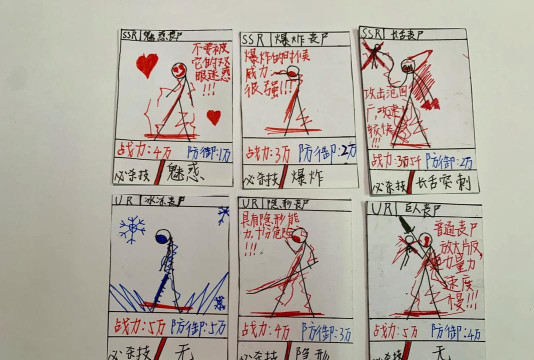 SSR 魅惑丧尸
不要被
它的双
眼迷惑
!!!
战力:4万 防御:1万
必杀技 魅惑
SSR 爆炸丧尸
爆炸的时候
威力
很强!!!
战力:3万 防御:2万
必杀技 爆炸
SSR 长舌丧尸
攻击范围
战力:3万 防御:2万
必杀技 长舌突刺
UR 冰冻丧尸
战力:5万 防御:5万
必杀技 无
UR 隐形丧尸
具有隐形能
力,
!!!
战力:4万 防御:3万
必杀技 隐形
UR 巨人丧尸
普通丧尸
放大版
力量力
速度
慢!!!
战力:5万 防御:4万
必杀技 无